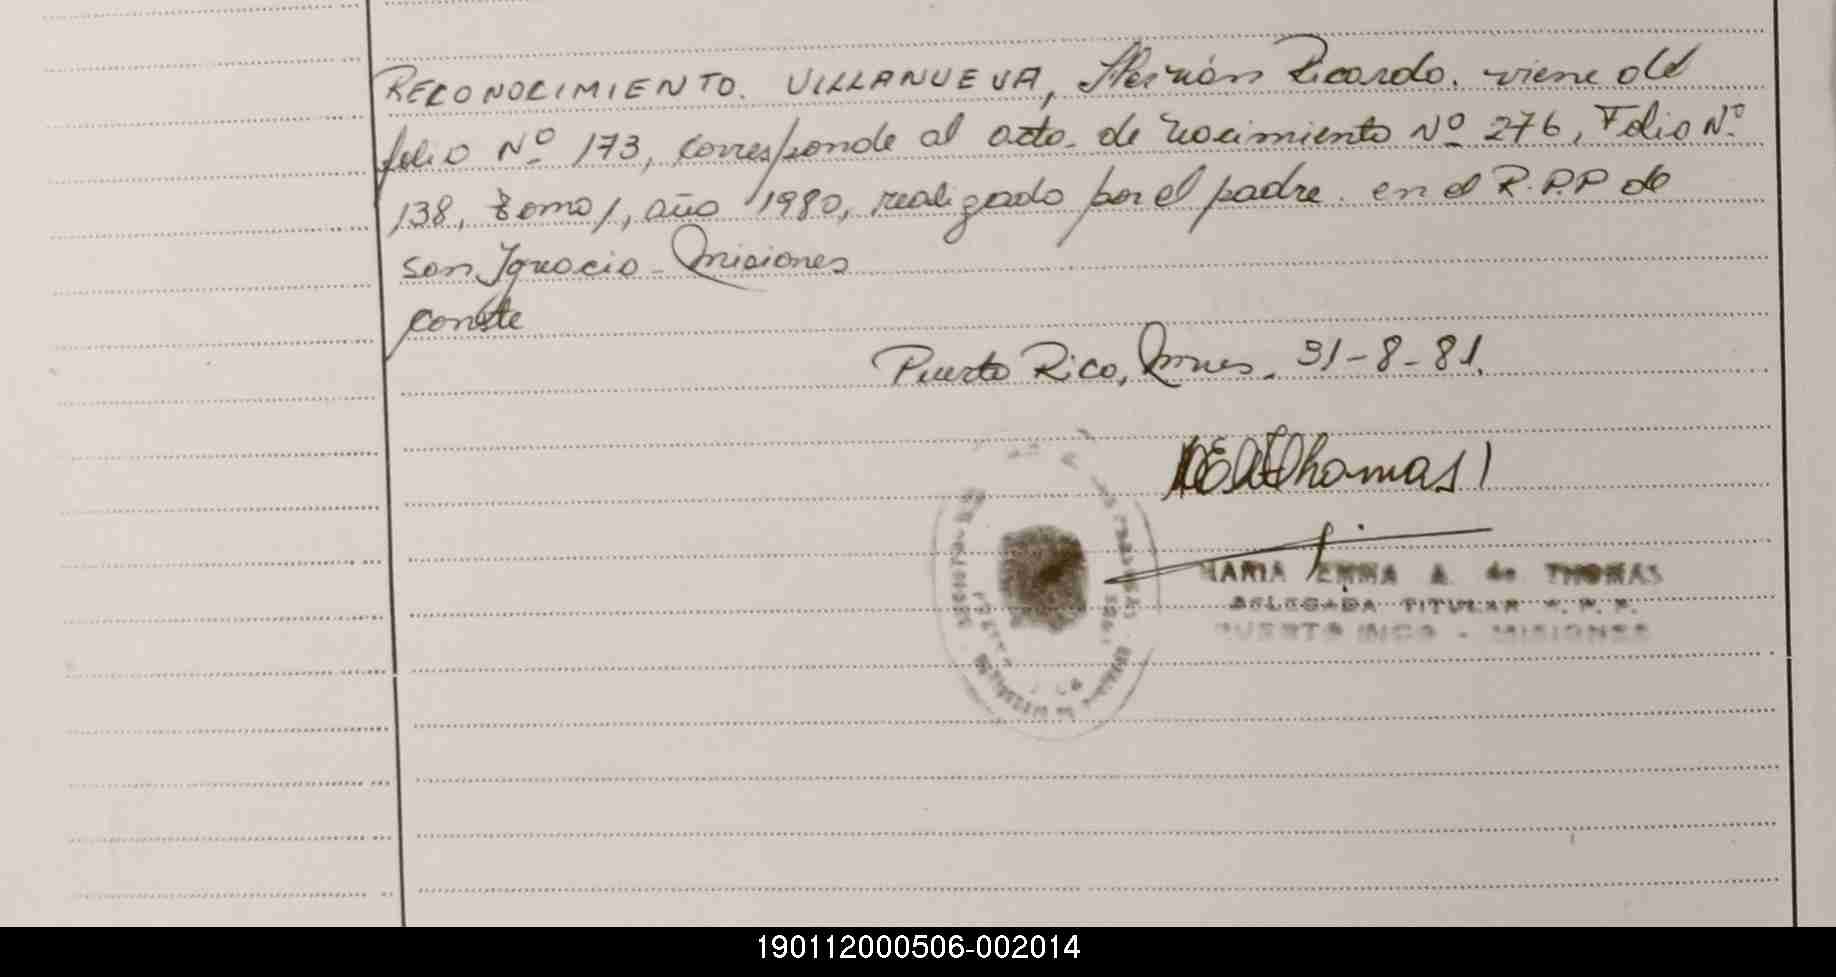 RECONOCIMIENTO. VILLANUEVA, Hernán Ricardo. viene del
folio Nº 173, corresponde al acta de nacimiento Nº 276, Folio Nº
138, tomo 1, año 1980, realizado por el padre en el R.P.P de
San Ignacio - Misiones
Conste
Puerto Rico, Mnes. 31-8-81.
MEAdeThomas
MARIA EMMA A. de THOMAS
DELEGADA TITULAR R. P. P.
PUERTO RICO - MISIONES
190112000506-002014